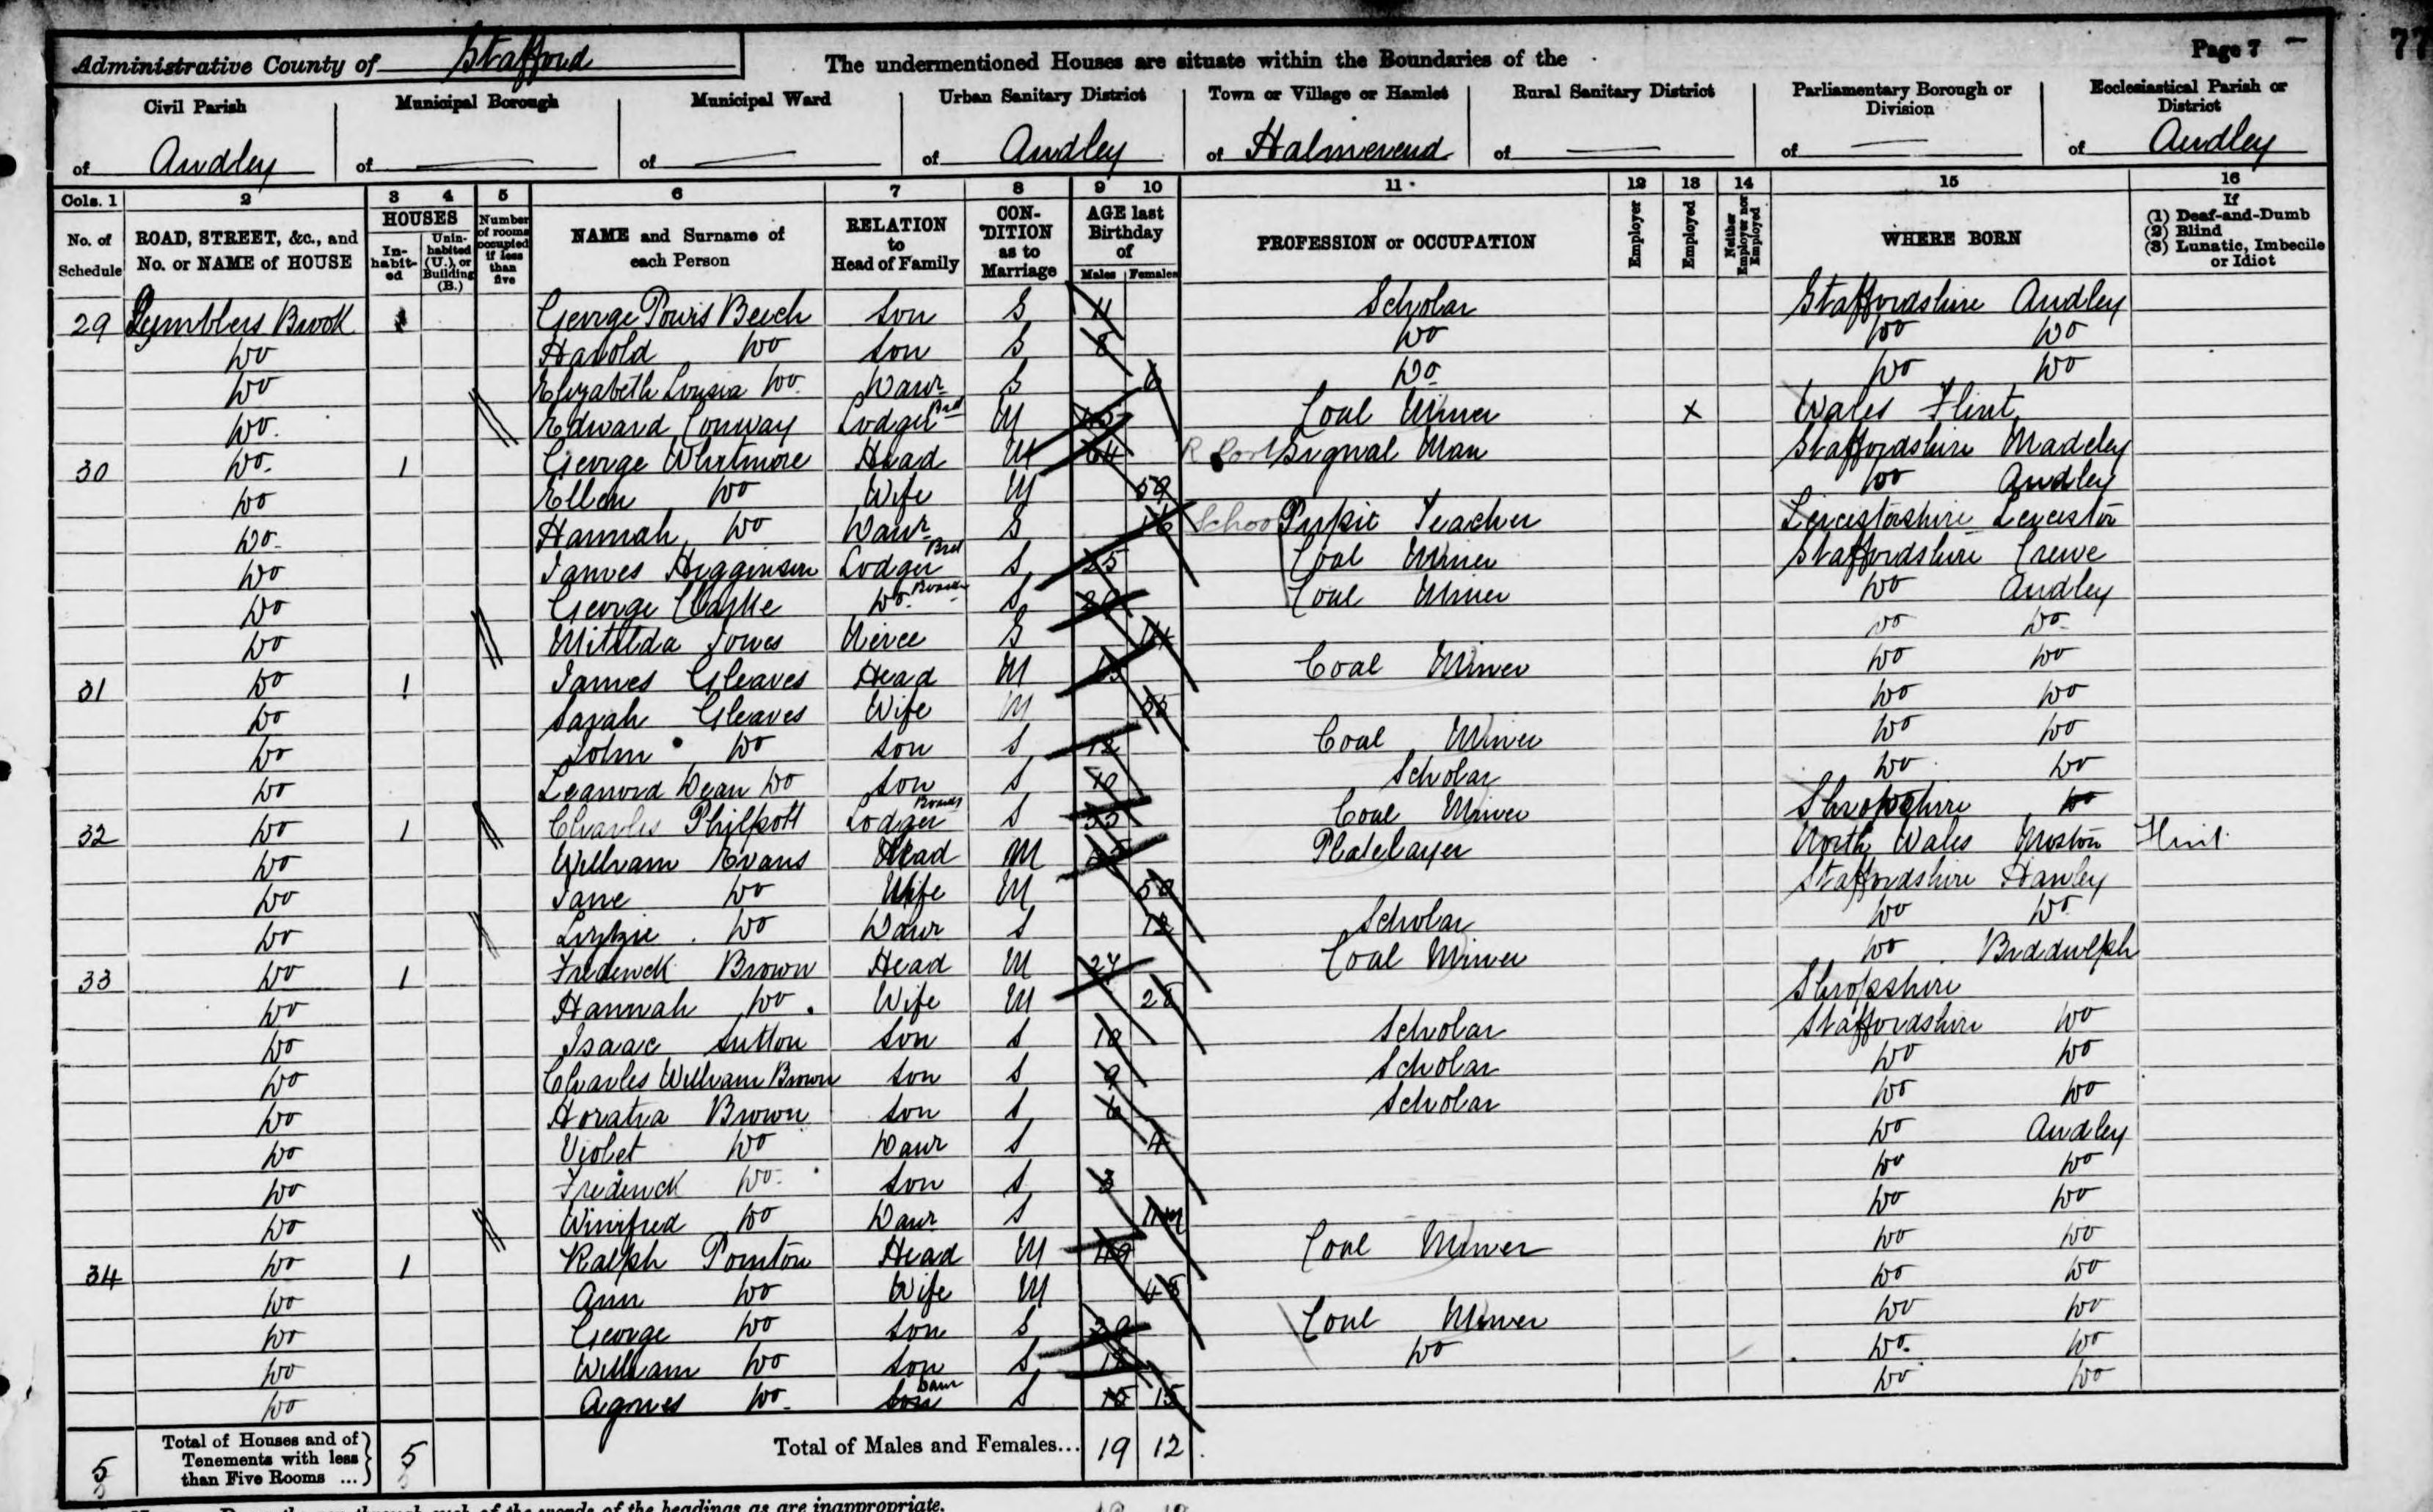 Page 7 77
Administrative County of Stafford The undermentioned Houses are situate within the Boundaries of the
Civil Parish Municipal Borough Municipal Ward Urban Sanitary District Town or Village or Hamlet Rural Sanitary District Parliamentary Borough or Division Ecclesiastical Parish or District
of Audley of — of — of Audley of Halmerend of — of — of Audley
Cols. 1 2 3 4 5 6 7 8 9 10 11 12 13 14 15 16
No. of Schedule ROAD, STREET, &c., and No. or NAME of HOUSE HOUSES Inhabited Uninhabited (U.), or Building (B.) Number of rooms occupied if less than five NAME and Surname of each Person RELATION to Head of Family CONDITION as to Marriage AGE last Birthday of Males Females PROFESSION or OCCUPATION Employer Employed Neither Employer nor Employed WHERE BORN If (1) Deaf-and-Dumb (2) Blind (3) Lunatic, Imbecile or Idiot
29 Brook George Powis Beech Son S 11 Scholar Staffordshire Audley
Do Harold Do Son S 8 Do Do Do
Do Elizabeth Lousia Do Daur S 6 Do Do Do
Do Edward Conway Lodger M Coal Miner x Wales Flint
30 Do 1 George Whitmore Head M 64 Signal Man Staffordshire Madeley
Do Ellen Do Wife M 59 Do Audley
Do Hannah Do Daur S 16 School Pupil Teacher Leicestershire Leicester
Do James Higginson Lodger S 25 Coal Miner Staffordshire Crewe
Do George Clarke Do S Coal Miner Do Audley
Do Mitilda Jones Niece S 14 Do Do
31 Do 1 James Gleaves Head M Coal Miner Do Do
Do Sarah Gleaves Wife M Do Do
Do John Do Son S 18 Coal Miner Do Do
Do Leanord Dean Do Son S 10 Scholar Do Do
32 Do 1 Charles Philpott Lodger S 35 Coal Miner Shropshire
Do William Evans Head M Platelayer North Wales Flint
Do Jane Do Wife M 50 Staffordshire Hanley
Do Lizzie Do Daur S 12 Scholar Do Do
33 Do 1 Frederick Brown Head M 27 Coal Miner Do Biddwlph
Do Hannah Do Wife M 28 Shropshire
Do Isaac Sutton Son S 10 Scholar Staffordshire Do
Do Charles William Brown Son S 9 Scholar Do Do
Do Horatia Brown Son S 6 Scholar Do Do
Do Violet Do Daur S 4 Do Audley
Do Frederick Do Son S 3 Do Do
Do Winifred Do Daur S 11m Do Do
34 Do 1 Ralph Pointon Head M 49 Coal Miner Do Do
Do Ann Do Wife M 48 Do Do
Do George Do Son S 20 Coal Miner Do Do
Do William Do Son S 18 Do Do Do
Do Agnes Do Daur S 15 15 Do Do
5 Total of Houses and of Tenements with less than Five Rooms ... 5 Total of Males and Females... 19 12